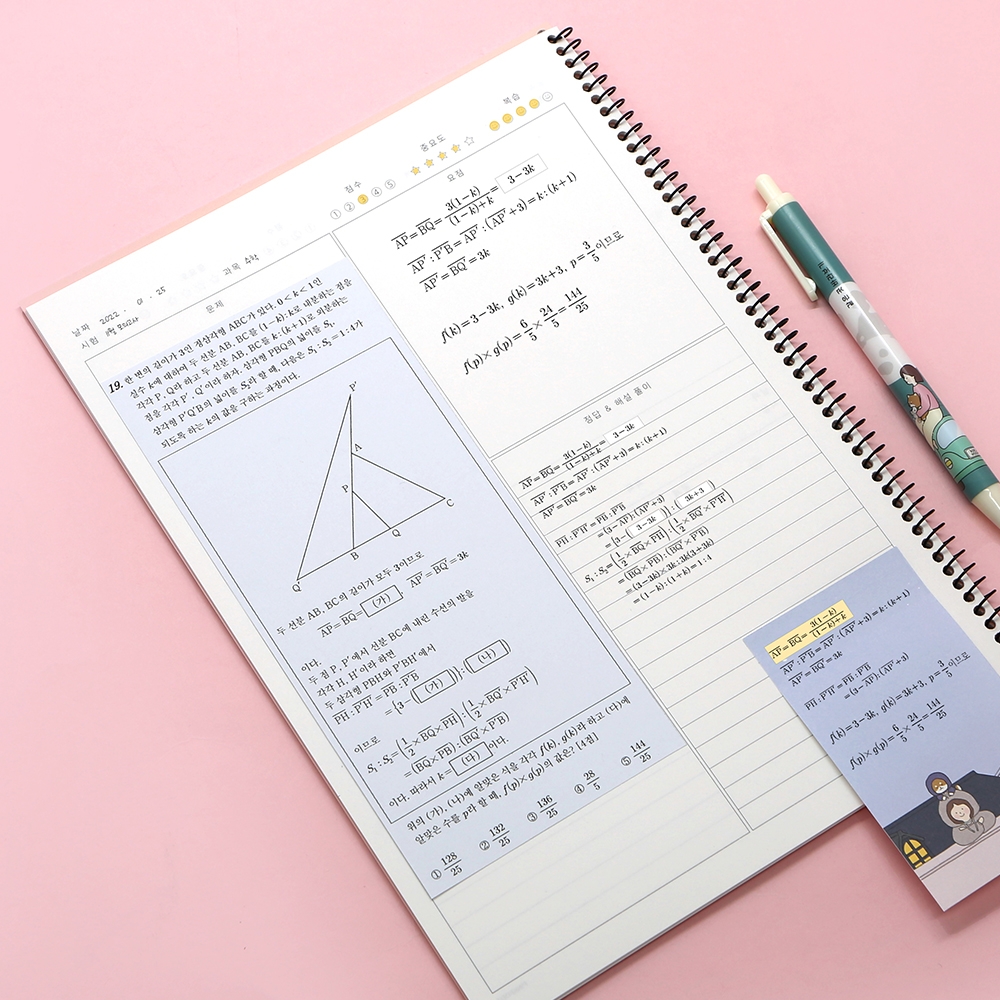 날짜 2022 . 01 . 25
과목 수학
점수 ① ② ③ ④ ⑤
중요도
복습
시험
문제
19. 한 변의 길이가 3인 정삼각형 ABC가 있다. 0 < k < 1인
실수 k에 대하여 두 선분 AB, BC를 (1-k) : k로 내분하는 점을
각각 P, Q라 하고 두 선분 AB, BC를 k : (k+1)로 외분하는
점을 각각 P′, Q′이라 하자. 삼각형 PBQ의 넓이를 S₁,
삼각형 P′Q′B의 넓이를 S₂라 할 때, 다음은 S₁ : S₂ = 1 : 4가
되도록 하는 k의 값을 구하는 과정이다.
P′
A
P
C
Q
B
Q′
두 선분 AB, BC의 길이가 모두 3이므로
AP = BQ = (가), AP′ = BQ′ = 3k
이다.
두 점 P, P′에서 선분 BC에 내린 수선의 발을
각각 H, H′이라 하면
두 삼각형 PBH와 P′BH′에서
PH : P′H′ = PB : P′B
= {3 - (가)} : (나)
이므로
S₁ : S₂ = (1/2 × BQ × PH) : (1/2 × BQ′ × P′H′)
= (BQ × PB) : (BQ′ × P′B)
이다. 따라서 k = (다) 이다.
위의 (가), (나)에 알맞은 식을 각각 f(k), g(k)라 하고 (다)에
알맞은 수를 p라 할 때, f(p) × g(p)의 값은? [4점]
① 128/25 ② 132/25 ③ 136/25 ④ 28/5 ⑤ 144/25
요점
AP = BQ = 3(1-k)/(1-k)+k = 3-3k
AP′ : P′B = AP′ : (AP′+3) = k : (k+1)
AP′ = BQ′ = 3k
f(k) = 3-3k, g(k) = 3k+3, p = 3/5이므로
f(p) × g(p) = 6/5 × 24/5 = 144/25
정답 & 해설 풀이
AP = BQ = 3(1-k)/(1-k)+k = 3-3k
AP′ : P′B = AP′ : (AP′+3) = k : (k+1)
AP′ = BQ′ = 3k
PH : P′H′ = PB : P′B
= (3-AP) : (AP′+3)
= {3-(3-3k)} : (3k+3)
S₁ : S₂ = (1/2 × BQ × PH) : (1/2 × BQ′ × P′H′)
= (BQ × PB) : (BQ′ × P′B)
= (3-3k) × 3k : 3k(3k+3)
= (1-k) : (1+k) = 1 : 4
AP = BQ = 3(1-k)/(1-k)+k
AP′ : P′B = AP′ : (AP′+3) = k : (k+1)
AP′ = BQ′ = 3k
PH : P′H′ = PB : P′B
= (3-AP) : (AP′+3)
f(k) = 3-3k, g(k) = 3k+3, p = 3/5이므로
f(p) × g(p) = 6/5 × 24/5 = 144/25